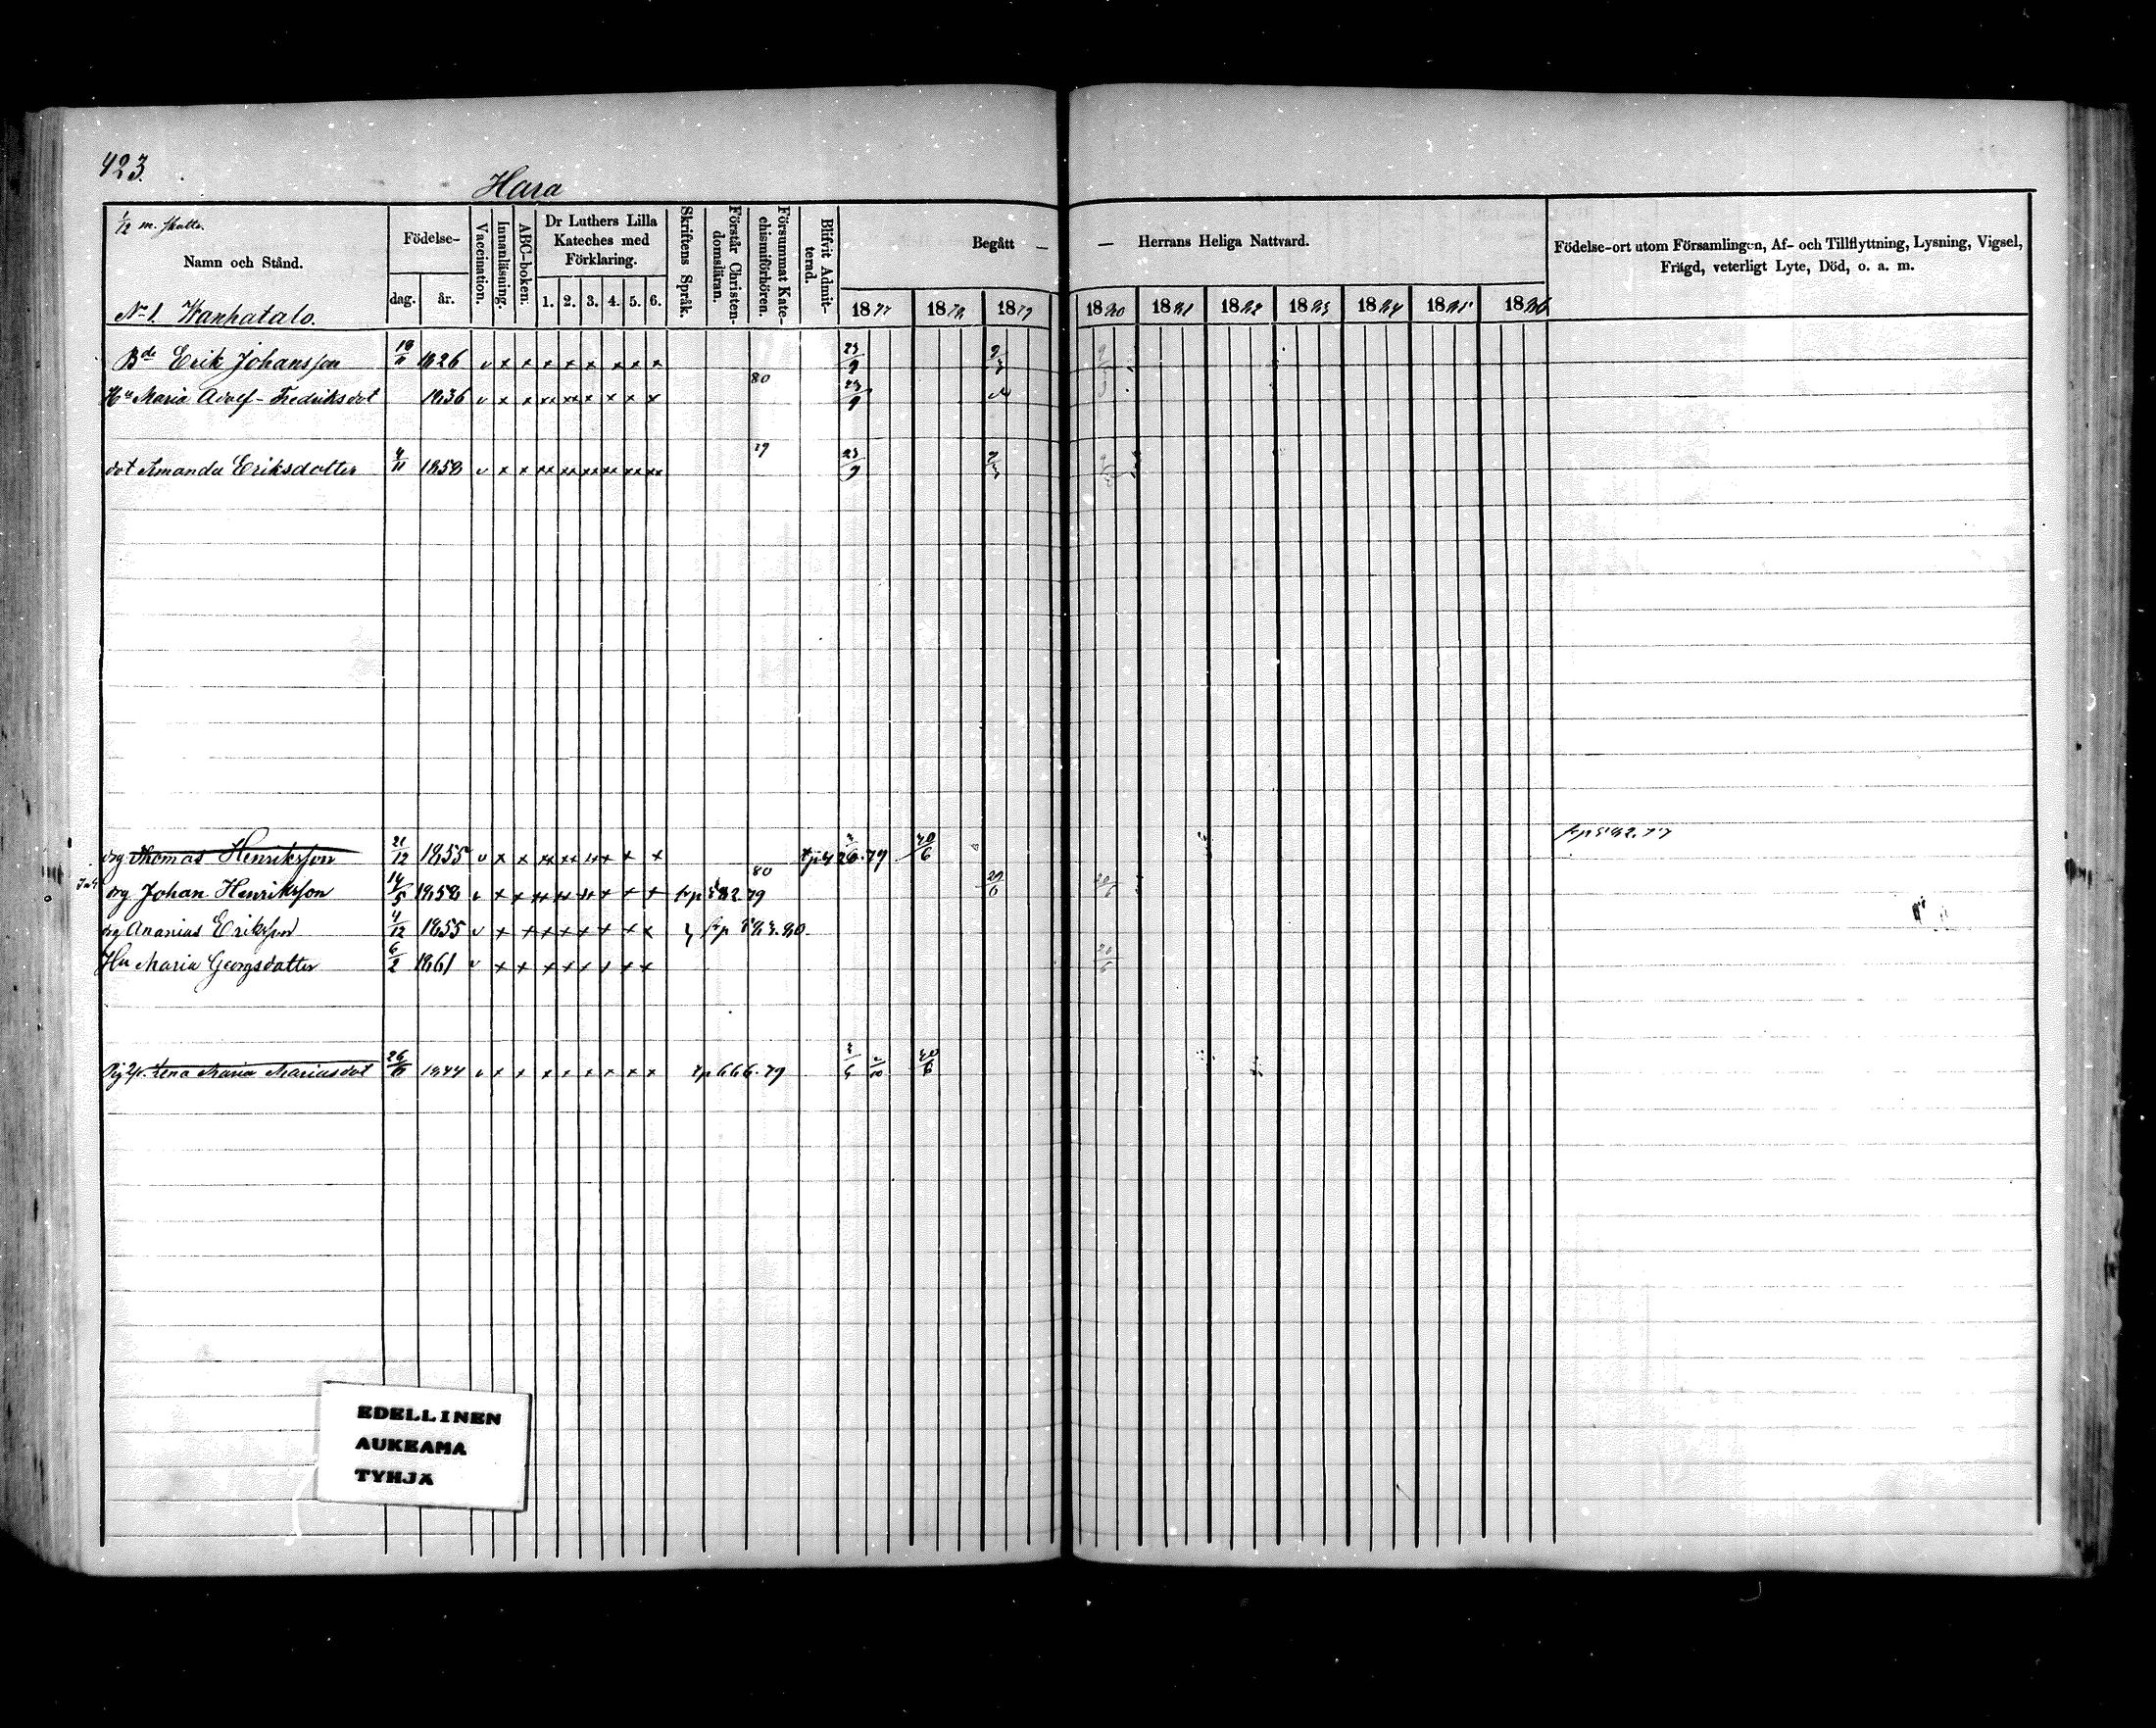 423.
Hara
1/2 m. skatt.
Namn och Stånd.
No 1. Wanhatalo.
Födelse-
dag. år.
Vaccination.
Innanläsning.
ABC-boken:
Dr Luthers Lilla
Kateches med
Förklaring.
1. 2. 3. 4. 5. 6.
Skriftens Språk.
Förstår Christen-
domsläran.
Försummat Kate-
chismiförhören.
Blifvit Admit-
terad.
Begått — — Herrans Heliga Nattvard.
1877 1878 1879 1880 1881 1882 1883 1884 1885 1886
Födelse-ort utom Församlingen, Af- och Tillflyttning, Lysning, Vigsel,
Frägd, veterligt Lyte, Död, o. a. m.
Bde Erik Johansson 19/11 1826 v x x x x x x x x 23/9 9/3 9/3
80
Hu Maria Adolf-Fredriksdot 1836 v x x x x x x x x 23/9
79
dot Amanda Eriksdotter 4/11 1858 v x x x x x x x x 23/9 9/3
drg Thomas Henriksson 21/12 1855 v x x x x x x x x 30/6
80
drg Johan Henriksson 14/5 1858 v x x x x x x x x 29/6 20/6
drg Ananias Eriksson 4/12 1855 v x x x x x x x x
Hu Maria Georgsdotter 6/2 1861 v x x x x x x x x 20/6
Pig Lena Maria Mariasdot 26/6 1844 v x x x x x x x x tp 666.79 30/6
EDELLINEN
AUKEAMA
TYHJÄ